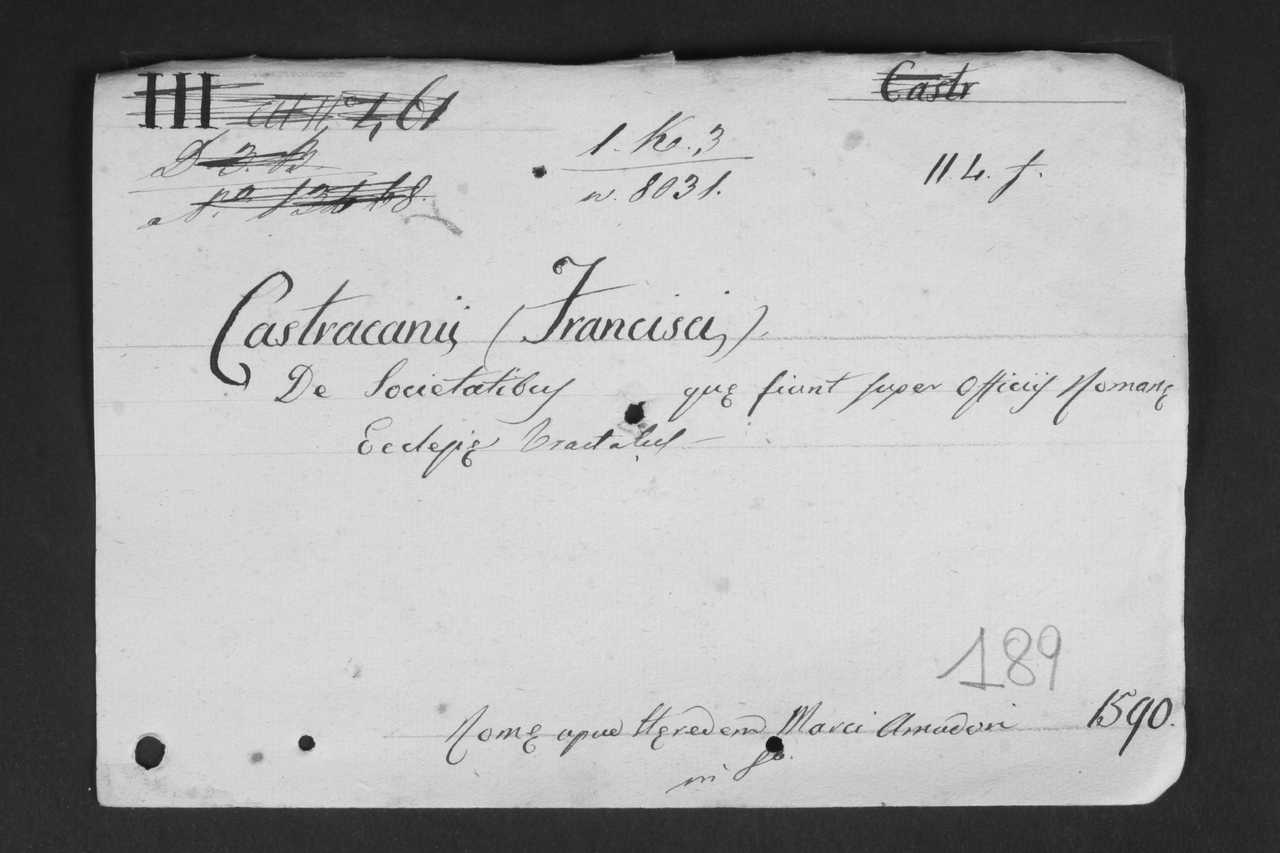 III 461
Castr
D. 3. B
N.° 13448.
1. K. 3
n. 8031.
114. f.
Castracanij (Francisci)
De Societatibus quę fiunt super Officijs Romanę
Ecclesię Tractatus
189
Romę apud Hęredem Marci Amadori 1590.
in f°.